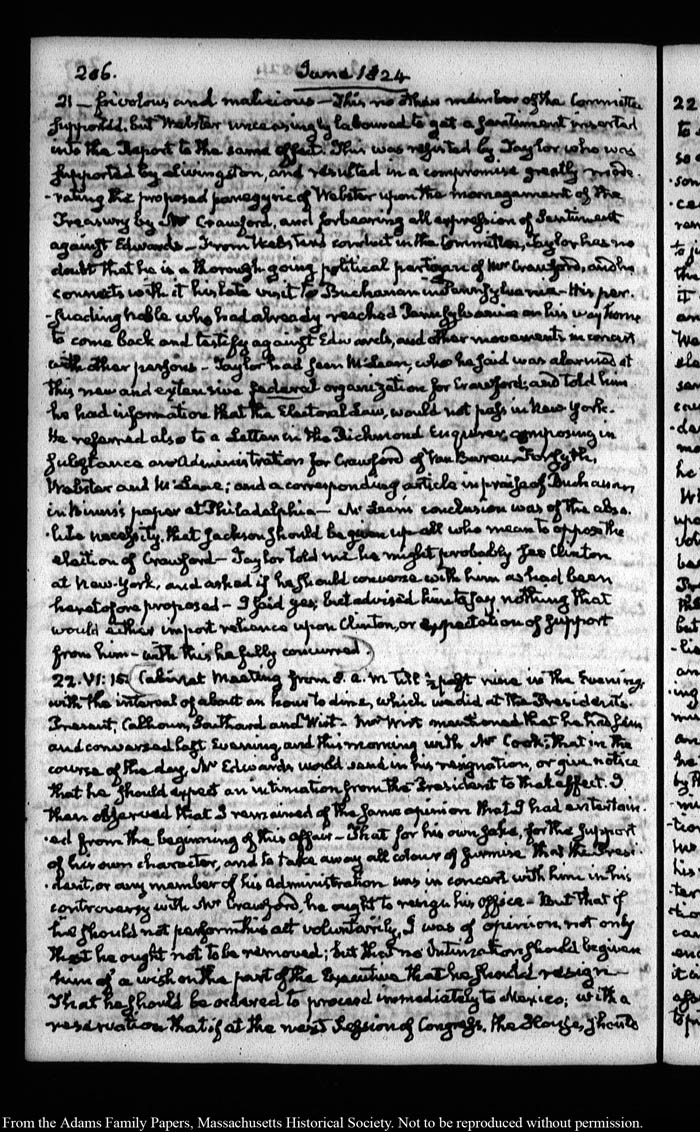 206.
June 1824
21 — frivolous and malicious — This no other member of the Committee
supported. but Webster unceasingly laboured to get a sentiment inserted
into the Report to the same effect. This was resisted by Taylor who was
supported by Livingston, and resulted in a compromise greatly mode-
-rating the proposed panegyric of Webster upon the management of the
Treasury by Mr Crawford, and forbearing all expression of Sentiment
against Edwards — From Webster's conduct in the Committee, Taylor has no
doubt that he is a thorough going political partizan of Mr Crawford, and he
connects with it his late visit to Buchanan in Pennsylvania — His per-
-suading Noble who had already reached Pennsylvania on his way home
to come back and testify against Edwards, and other movements in concert
with other persons — Taylor had seen McLean, who he said was alarmed at
this new and extensive federal organization for Crawford; and told him
he had information that the Electoral Law, would not pass in New York.
He referred also to a Letter in the Richmond Enquirer, composing in
substance an Administration for Crawford of Van Buren, Forsyth,
Webster and McLane; and a corresponding article in praise of Buchanan
in Binns's paper at Philadelphia — McLean's conclusion was of the abso-
-lute necessity, that Jackson should be given up all who mean to oppose the
election of Crawford — Taylor told me he might probably see Clinton
at New-York, and asked if he should converse with him as had been
heretofore proposed — I said yes; but advised him to say nothing that
would either import reliance upon Clinton, or expectation of support
from him — with this he fully concurred
22. VI: 15. Cabinet Meeting from 8. a.m till ½ past nine in the Evening,
with the interval of about an hour to dine, which we did at the President's.
Present, Calhoun, Southard and Wirt — Mr Wirt mentioned that he had seen
and conversed last Evening, and this morning with Mr Cook; that in the
course of the day, Mr Edwards would send in his resignation, or give notice
that he should expect an intimation from the President to that effect. I
then observed that I remained of the same opinion that I had entertain-
-ed from the beginning of this affair — That for his own sake, for the support
of his own character, and to take away all colour of surmise that the Presi-
-dent, or any member of his Administration was in concert with him in his
controversy with Mr Crawford, he ought to resign his office — But that if
he should not perform this act voluntarily, I was of opinion not only
that he ought not to be removed; but that no intimation should be given
him of a wish on the part of the Executive that he should resign —
That he should be ordered to proceed immediately to Mexico; with a
reservation that if at the next Session of Congress, the House, should
From the Adams Family Papers, Massachusetts Historical Society. Not to be reproduced without permission.